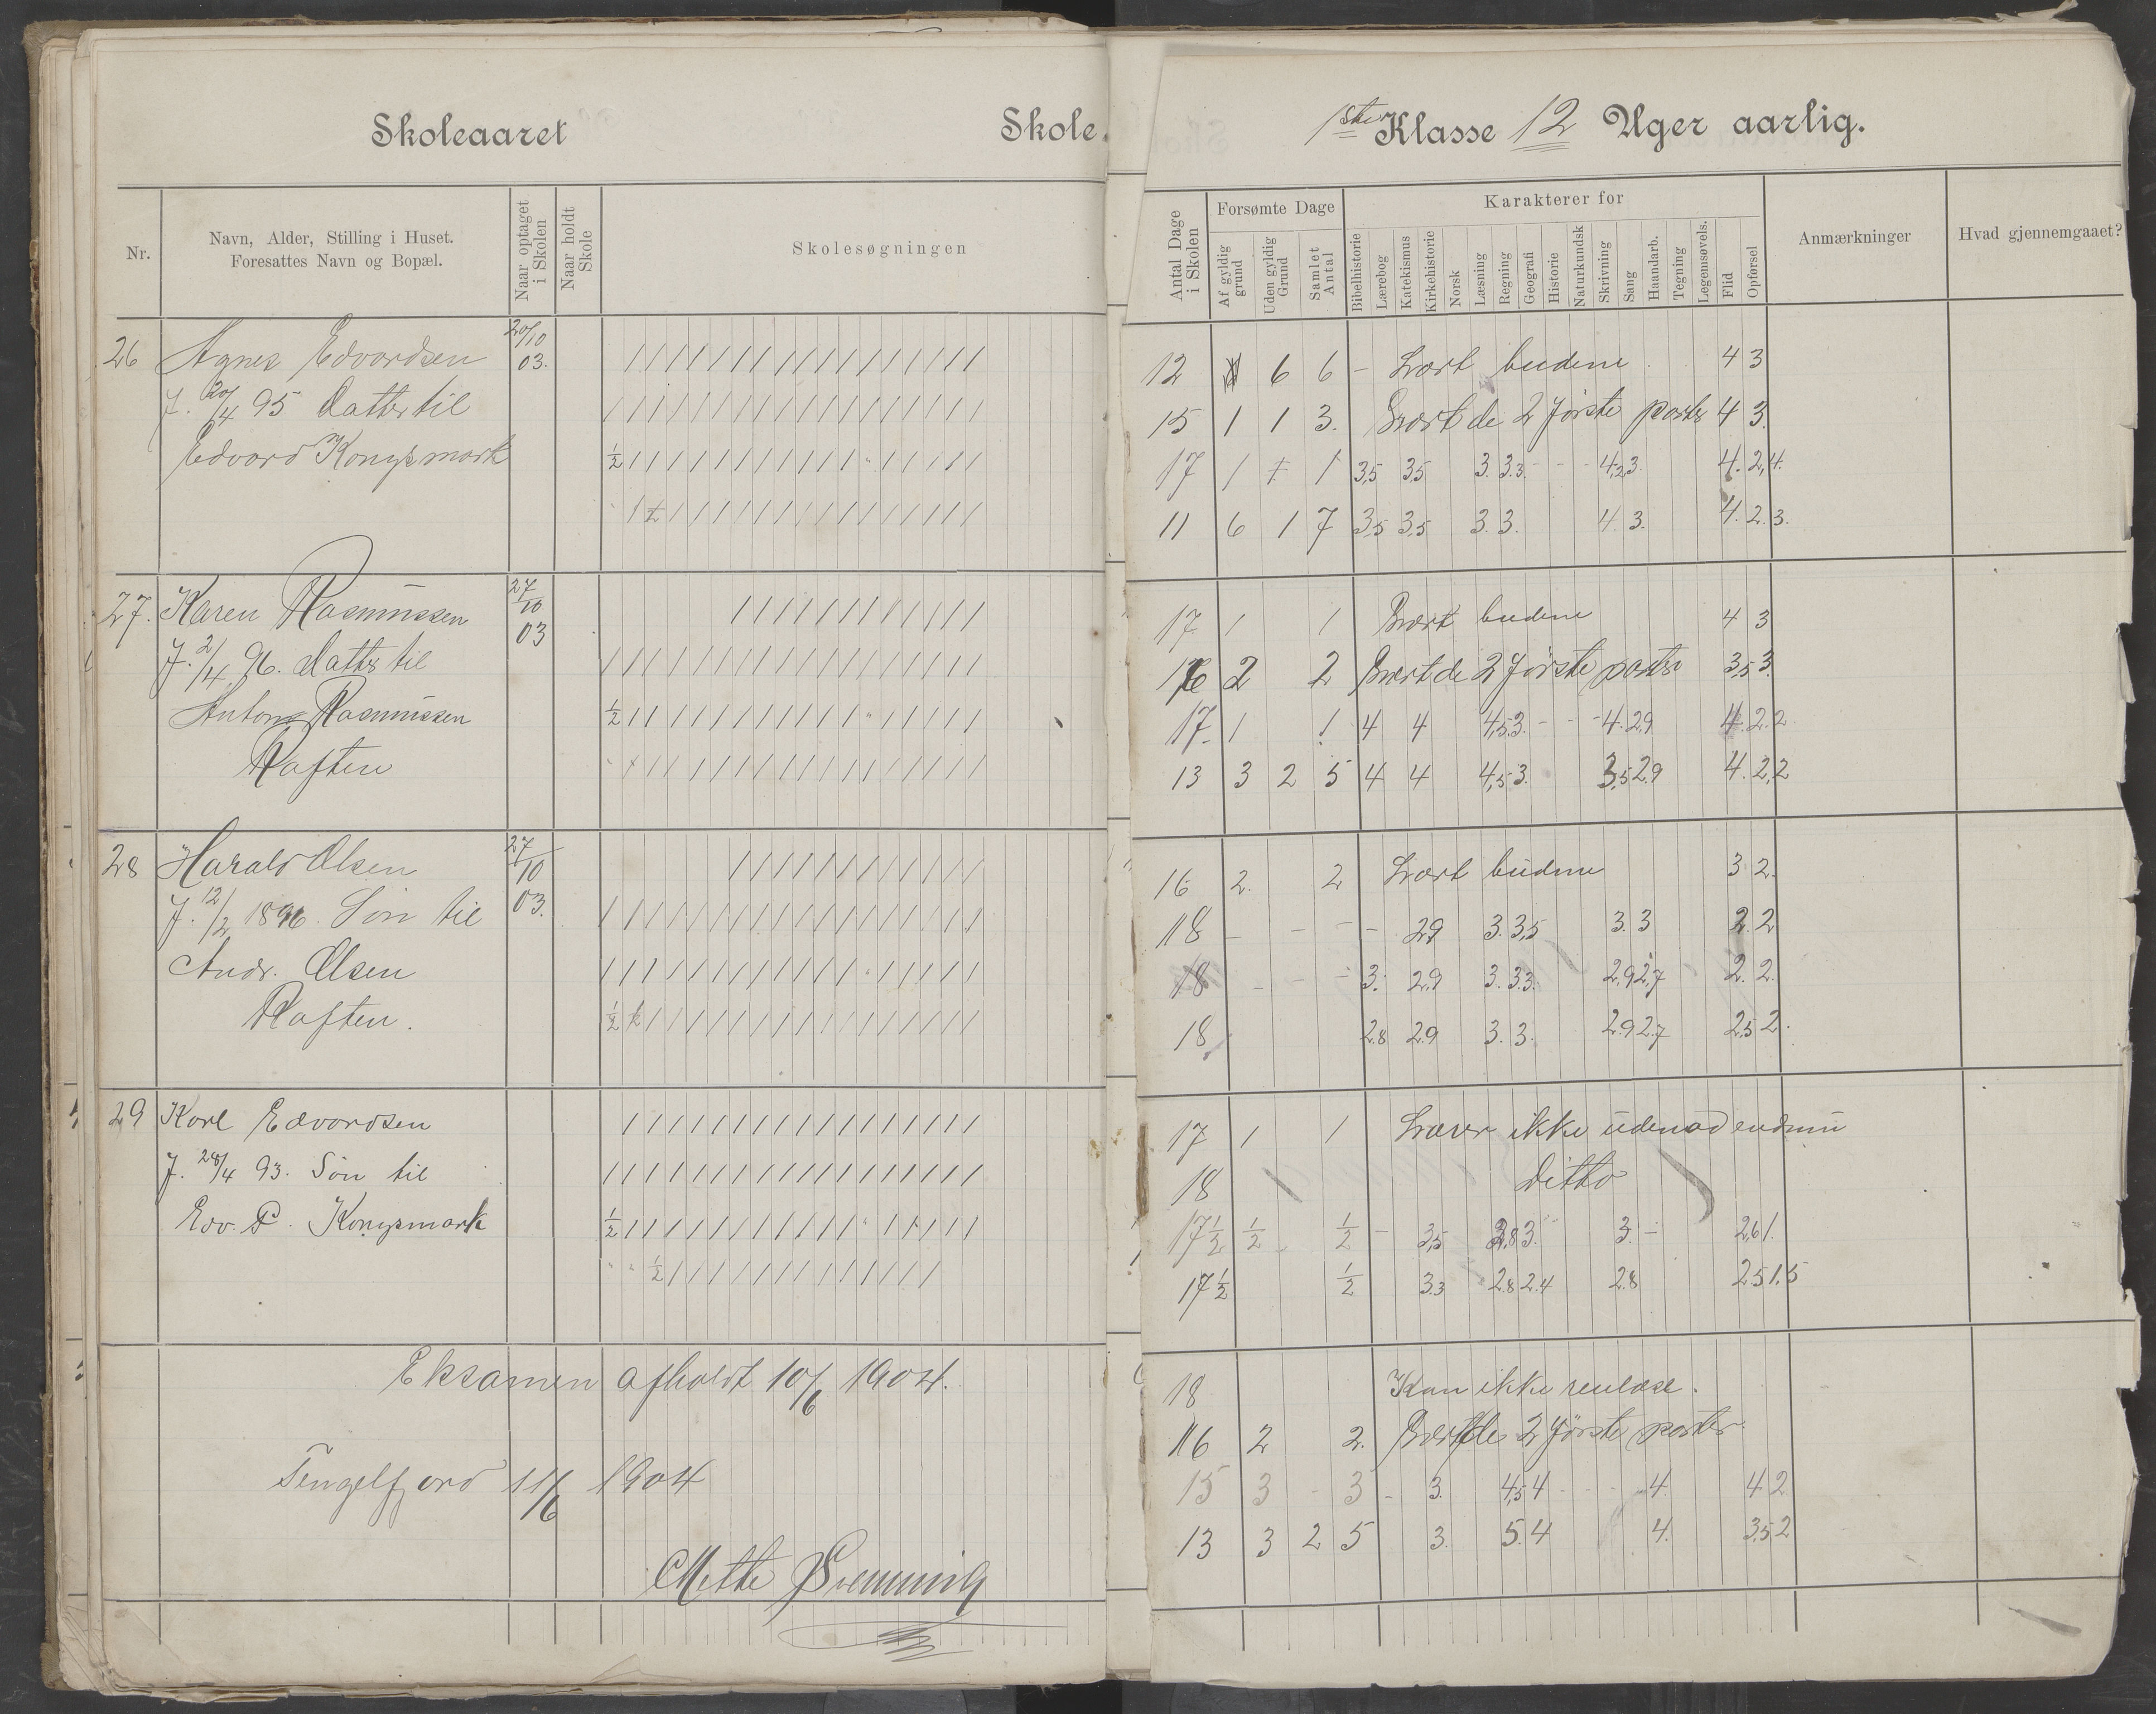 Skoleaaret Skole. 1ste Klasse 12 Uger aarlig.
Nr.
Navn, Alder, Stilling i Huset.
Foresattes Navn og Bopæl.
Naar optaget i Skolen
Naar holdt Skole
Skolesøgningen
Antal Dage i Skolen
Forsømte Dage
Af gyldig grund
Uden gyldig Grund
Samlet Antal
Karakterer for
Bibelhistorie
Lærebog
Katekismus
Kirkehistorie
Norsk
Læsning
Regning
Geografi
Historie
Naturkundsk
Skrivning
Sang
Haandarb.
Tegning
Legemsøvels.
Flid
Opførsel
Anmærkninger
Hvad gjennemgaaet?
26 Agnes Edvardsen 20/10 03.
f. 20/4 95 datter til
Edvard Kongsmark
12 6 6 - Lært budene 4 3
15 1 1 3. Lært de 2 første parter 4 3.
17 1 1 3,5 3,5 3. 3.3 - - - 4,2,3. 4. 2,4.
11 6 1 7 3,5 3,5 3. 3. 4. 3. 4. 2. 3.
27. Karen Rasmussen 27/10 03
f. 2/4 96. datter til
Anton Rasmussen
Raften
17 1 1 Lært budene 4 3
2 2 Lært de 2 første parter 3,5 3.
17. 1 1 4 4 4,5 3. - - - 4. 2,9 4. 2. 2.
13 3 2 5 4 4 4,5 3. 3,5 2,9 4. 2,2
28 Harald Olsen 27/10 03.
f. 12/2 1896. Søn til
Andr. Olsen
Raften.
16 2. 2 Lært budene 3 2.
18 - - - - 2,9 3. 3,5 3. 3 2. 2
18 - - - 3. 2,9 3. 3.3. 2,9 2,7 2. 2.
18 2.8 2.9 3. 3. 2.9 2.7 2,5 2.
29 Karl Edvardsen
f. 28/4 93. Søn til
Edv. P. Kongsmark
17 1 1 Lærer ikke udenad endnu
18 Ditto
17 1/2 1/2 1/2 - 3,5 2,8 3. 3. - 2,6 1.
17 1/2 1/2 3.3 2.8 2.4 2.8 2.5 1.5
Eksamen afholdt 10/6 1904.
Tengelfjord 11/6 1904
Mette
18 Kan ikke renlæse.
16 2 2. Lært de 2 første parter.
15 3 - 3 - 3. 4,5 4 - - - 4. 4 2.
13 3 2 5 3. 5. 4 4. 3,5 2